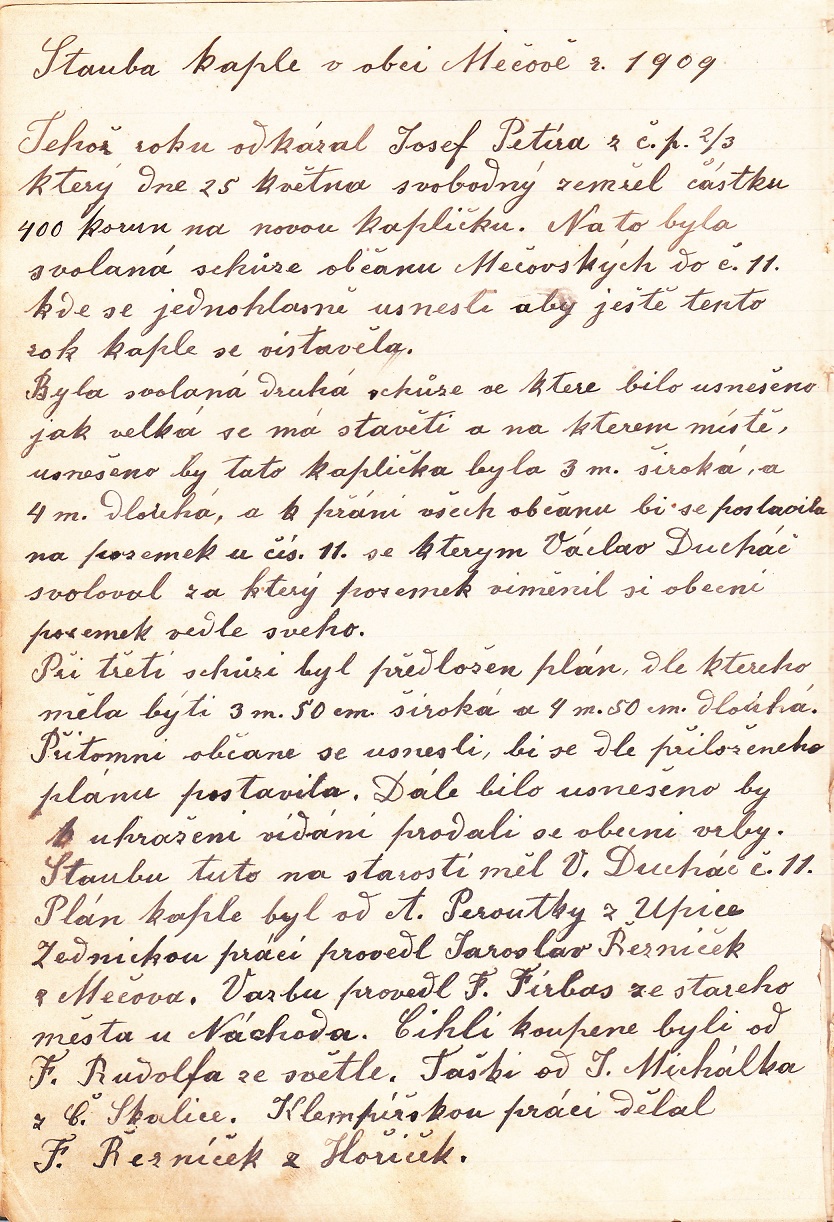 Stauba kaple v obci Měčově r. 1909
Tehož roku odkázal Josef Petira z č.p. 2/3
který dne 25 května svobodný zemřel částku
400 korun na novou kapličku. Na to byla
svolaná schůze občanu Mečovských do č. 11.
kde se jednohlasně usnesli aby ještě tento
rok kaple se vistavěla.
Byla svolaná druhá schůze ve ktere bilo usnešeno
jak velká se má stavěti a na kterem místě,
usnešeno by tato kaplička byla 3 m. široká, a
4 m. dlouhá, a k přáni všech občanu bi se postavila
na pozemek u čís. 11. se kterym Václav Ducháč
svoloval za který pozemek viměnil si obecni
pozemek vedle sveho.
Při třetí schůzi byl předložen plán, dle ktereho
měla býti 3 m. 50 cm. široká a 4 m. 50 cm. dlouhá.
Přitomni občane se usnesli, bi se dle přiloženeho
plánu postavila. Dále bilo usnešeno by
k uhraženi vidáni prodali se obecni vrby.
Staubu tuto na starosti měl V. Ducháč č. 11.
Plán kaple byl od A. Peroutky z Upice
Zednickou práci provedl Jaroslav Řezniček
z Mečova. Vazbu provedl F. Firbas ze stareho
města u Náchoda. Cihli koupene byli od
F. Rudolfa ze světle. Taški od J. Michálka
z Č. Skalice. Klempířskou práci dělal
F. Řezníček z Hořiček.